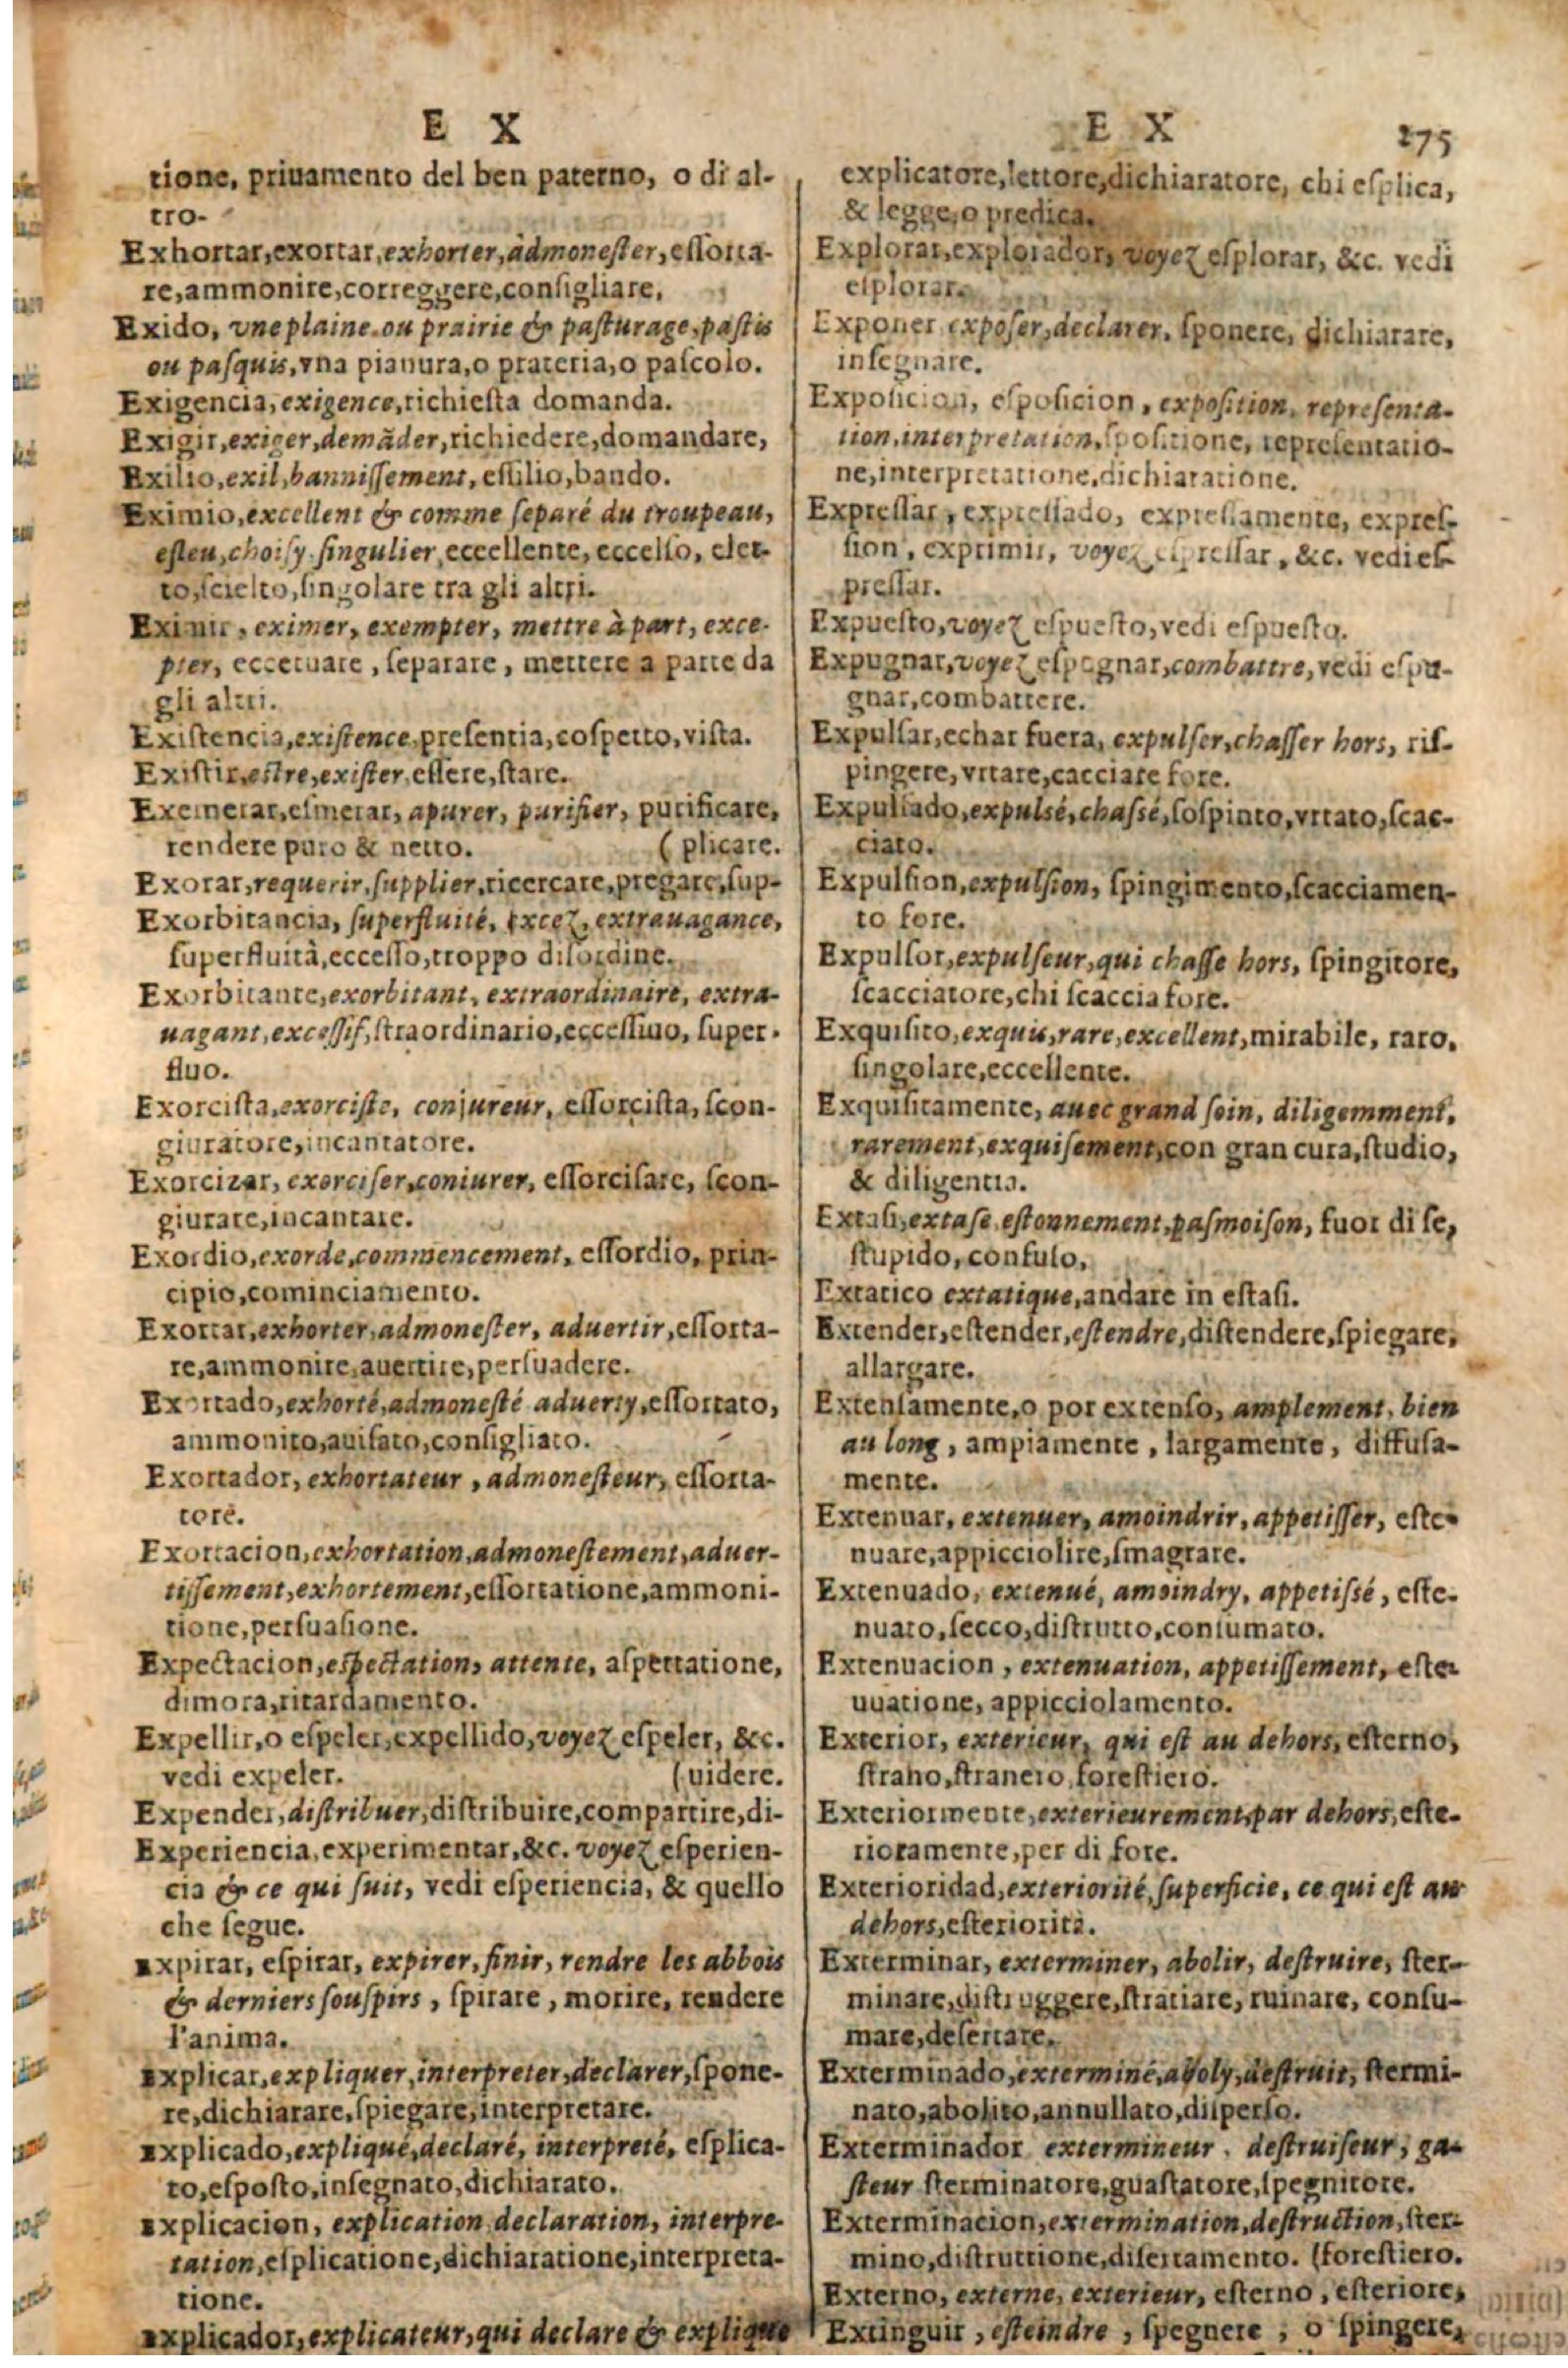 E X
tione, priuamento del ben paterno, o di al-
tro-
Exhortar,exortar,exhorter,admonester,essorta-
re,ammonire,correggere,consigliare,
Exido, vne plaine ou prairie & pasturage,pastis
ou pasquis,vna pianura,o prateria,o pascolo.
Exigencia,exigence,richiesta domanda.
Exigir,exiger,demãder,richiedere,domandare,
Exilio,exil,bannissement,essilio,bando.
Eximio,excellent & comme separé du troupeau,
esleu,choisy.singulier,eccellente,eccelso, elet-
to,scielto,singolare tra gli altri.
Eximir, eximer, exempter, mettre à part, exce-
pter, eccetuare, separare, mettere a parte da
gli altri.
Existencia,existence,presentia,cospetto,vista.
Existir,estre,exister,essere,stare.
Exemerar,esmerar, apurer, purifier, purificare,
rendere puro & netto. (plicare.
Exorar,requerir,supplier,ricercare,pregare,sup-
Exorbitancia, superfluité, excez, extrauagance,
superfluità,eccesso,troppo disordine.
Exorbitante,exorbitant, extraordinaire, extra-
uagant,excessif,straordinario,eccessiuo, super-
fluo.
Exorcista,exorciste, conjureur, essorcista, scon-
giuratore,incantatore.
Exorcizar, exorciser,coniurer, essorcisare, scon-
giurare,incantare.
Exordio,exorde,commencement, essordio, prin-
cipio,cominciamento.
Exortar,exhorter,admonester, aduertir,essorta-
re,ammonire,auertire,persuadere.
Exortado,exhorté,admonesté aduerty,essortato,
ammonito,auisato,consigliato.
Exortador, exhortateur, admonesteur, essorta-
tore.
Exortacion,exhortation,admonestement,aduer-
tissement,exhortement,essortatione,ammoni-
tione,persuasione.
Expectacion,espectation, attente, aspettatione,
dimora,ritardamento.
Expellir,o espeler,expellido,voyez espeler, &c.
vedi expeler. (uidere.
Expender,distribuer,distribuire,compartire,di-
Experiencia,experimentar,&c. voyez esperien-
cia & ce qui suit, vedi esperiencia, & quello
che segue.
Expirar, espirar, expirer, finir, rendre les abbois
& derniers souspirs, spirare, morire, rendere
l'anima.
Explicar,expliquer,interpreter,declarer,spone-
re,dichiarare,spiegare,interpretare.
Explicado,expliqué,declaré, interpreté, esplica-
to,esposto,insegnato,dichiarato.
Explicacion, explication,declaration, interpre-
tation,esplicatione,dichiaratione,interpreta-
tione.
Explicador,explicateur,qui declare & explique
E X 275
explicatore,lettore,dichiaratore, chi esplica,
& legge,o predica.
Explorar,explorador, voyez esplorar, &c. vedi
esplorar.
Exponer exposer,declarer, sponere, dichiarare,
insegnare.
Exposicion, esposicion, exposition, representa-
tion,interpretation,spositione, representatio-
ne,interpretatione,dichiaratione.
Expressar, expressado, expressamente, expres-
sion, exprimir, voyez espressar, &c. vedi es-
pressar.
Expuesto,voyez espuesto,vedi espuesto.
Expugnar,voyez espugnar,combattre,vedi espu-
gnar,combattere.
Expulsar,echar fuera, expulser,chasser hors, ris-
pingere,vrtare,cacciare fore.
Expulsado,expulsé,chassé,sospinto,vrtato,scac-
ciato.
Expulsion,expulsion, spingimento,scacciamen-
to fore.
Expulsor,expulseur,qui chasse hors, spingitore,
scacciatore,chi scaccia fore.
Exquisito,exquis,rare,excellent,mirabile, raro,
singolare,eccellente.
Exquisitamente, auec grand soin, diligemment,
rarement,exquisement,con gran cura,studio,
& diligentia.
Extasi,extase,estonnement,pasmoison, fuor di se,
stupido, confuso,
Extatico extatique,andare in estasi.
Extender,estender,estendre,distendere,spiegare,
allargare.
Extensamente,o por extenso, amplement, bien
au long, ampiamente, largamente, diffusa-
mente.
Extenuar, extenuer, amoindrir, appetisser, este-
nuare,appicciolire,smagrare.
Extenuado, extenué, amoindry, appetissé, este-
nuato,secco,distrutto,consumato.
Extenuacion, extenuation, appetissement, este-
uuatione, appicciolamento.
Exterior, exterieur, qui est au dehors, esterno,
strano,stranero,forestiero.
Exteriormente,exterieurement,par dehors,este-
rioramente,per di fore.
Exterioridad,exteriorité,superficie, ce qui est au
dehors,esteriorità.
Exterminar, exterminer, abolir, destruire, ster-
minare,distruggere,stratiare, ruinare, consu-
mare,desertare.
Exterminado,exterminé,aboly,destruit, stermi-
nato,abolito,annullato,disperso.
Exterminador extermineur, destruiseur, ga-
steur sterminatore,guastatore,spegnitore.
Exterminacion,extermination,destruction,ster-
mino,distruttione,disertamento. (forestiero.
Externo, externe, exterieur, esterno, esteriore,
Extinguir, esteindre, spegnere, o spingere,